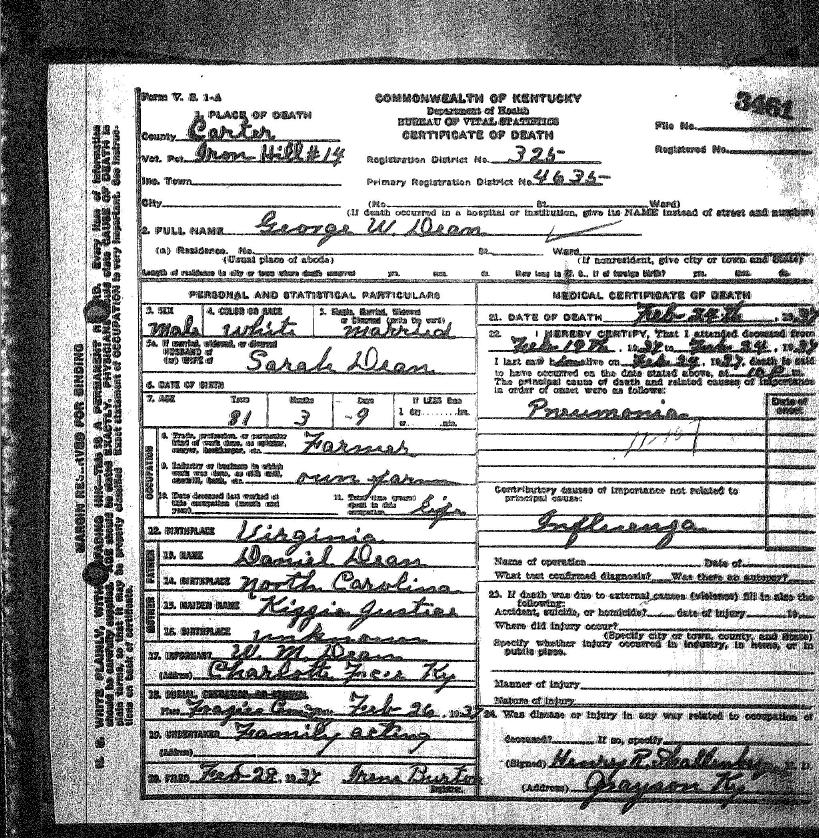 Form V. S. 1-A
COMMONWEALTH OF KENTUCKY
Department of Health
BUREAU OF VITAL STATISTICS
CERTIFICATE OF DEATH
3461
File No.
Registered No.
1. PLACE OF DEATH
County Carter
Vot. Pct. Iron Hill #14
Registration District No. 325
Inc. Town
Primary Registration District No. 4635
City (No. St. Ward)
(If death occurred in a hospital or institution, give its NAME instead of street and number)
2. FULL NAME George W. Dean
(a) Residence. No. St. Ward
(Usual place of abode) (If nonresident, give city or town and State)
Length of residence in city or town where death occurred yrs. mos. ds. How long in U. S., if of foreign birth? yrs. mos. ds.
PERSONAL AND STATISTICAL PARTICULARS
3. SEX 4. COLOR OR RACE 5. Single, Married, Widowed
or Divorced (write the word)
Male White Married
5a. If married, widowed, or divorced
HUSBAND of
(or) WIFE of Sarah Dean
6. DATE OF BIRTH
7. AGE Years Months Days If LESS than
81 3 9 1 day hrs.
or min.
OCCUPATION
8. Trade, profession, or particular
kind of work done, as spinner,
sawyer, bookkeeper, etc. Farmer
9. Industry or business in which
work was done, as silk mill,
sawmill, bank, etc. own farm
10. Date deceased last worked at
this occupation (month and
year)
11. Total time (years)
spent in this
occupation
12. BIRTHPLACE Virginia
FATHER
13. NAME Daniel Dean
14. BIRTHPLACE North Carolina
MOTHER
15. MAIDEN NAME Kizzie Justice
16. BIRTHPLACE unknown
17. INFORMANT W. M. Dean
(Address) Charlotte Ky
18. BURIAL CREMATION OR REMOVAL
Place Date Feb 26, 1937
19. UNDERTAKER Family acting
(Address)
20. FILED Feb-28, 1937 Irene Burton
Registrar.
MEDICAL CERTIFICATE OF DEATH
21. DATE OF DEATH Feb 24th, 1937
22. I HEREBY CERTIFY, That I attended deceased from
Feb 19th, 1937 to Feb 24, 1937
I last saw him alive on Feb 24, 1937, death is said
to have occurred on the date stated above, at 10 P m.
The principal cause of death and related causes of importance
in order of onset were as follows:
Date of
onset
Pneumonia
Contributory causes of importance not related to
principal cause:
Influenza
Name of operation Date of
What test confirmed diagnosis? Was there an autopsy?
23. If death was due to external causes (violence) fill in also the
following:
Accident, suicide, or homicide? date of injury 19
Where did injury occur?
(Specify city or town, county, and State)
Specify whether injury occurred in industry, in home, or in
public place.
Manner of injury
Nature of injury
24. Was disease or injury in any way related to occupation of
deceased? If so, specify
(Signed) Henry R. M. D.
(Address) Grayson Ky
MARGIN RESERVED FOR BINDING